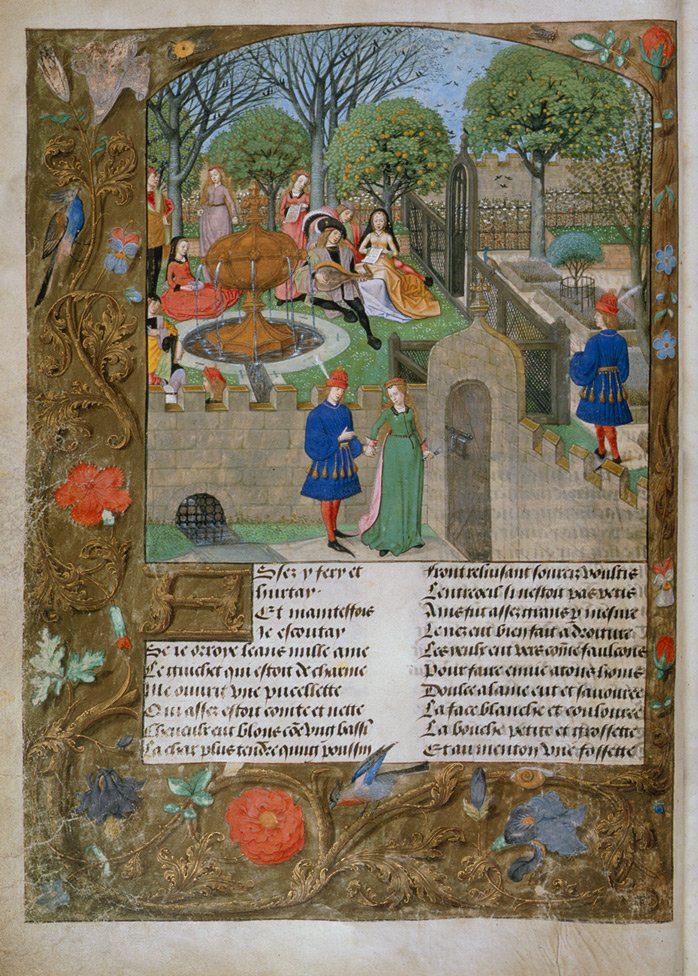 Assez y fery et
hurtay.
Et maintesfois
Je escoutay
Se ie orroye leans nulle ame
Le guichet qui estoit de charme
Me ouurit vne pucellette
Qui assez estoit cointe et nette
Cheueulx eut blons cõe vng bassi
La char plus tendre qung poussin
Front reluisant sourcilz voultis
Lentroeil si nestoit pas petis
Ains fut assez grans p mesure
Le nez eut bien fait a droiture
Les yeulx eut vers cõe faulcons
Pour faire enuie a tous homs
Doulce alaine eut et sauouree
La face blanche et coulouree
La bouche petite et grossette
Et au menton vne fossette